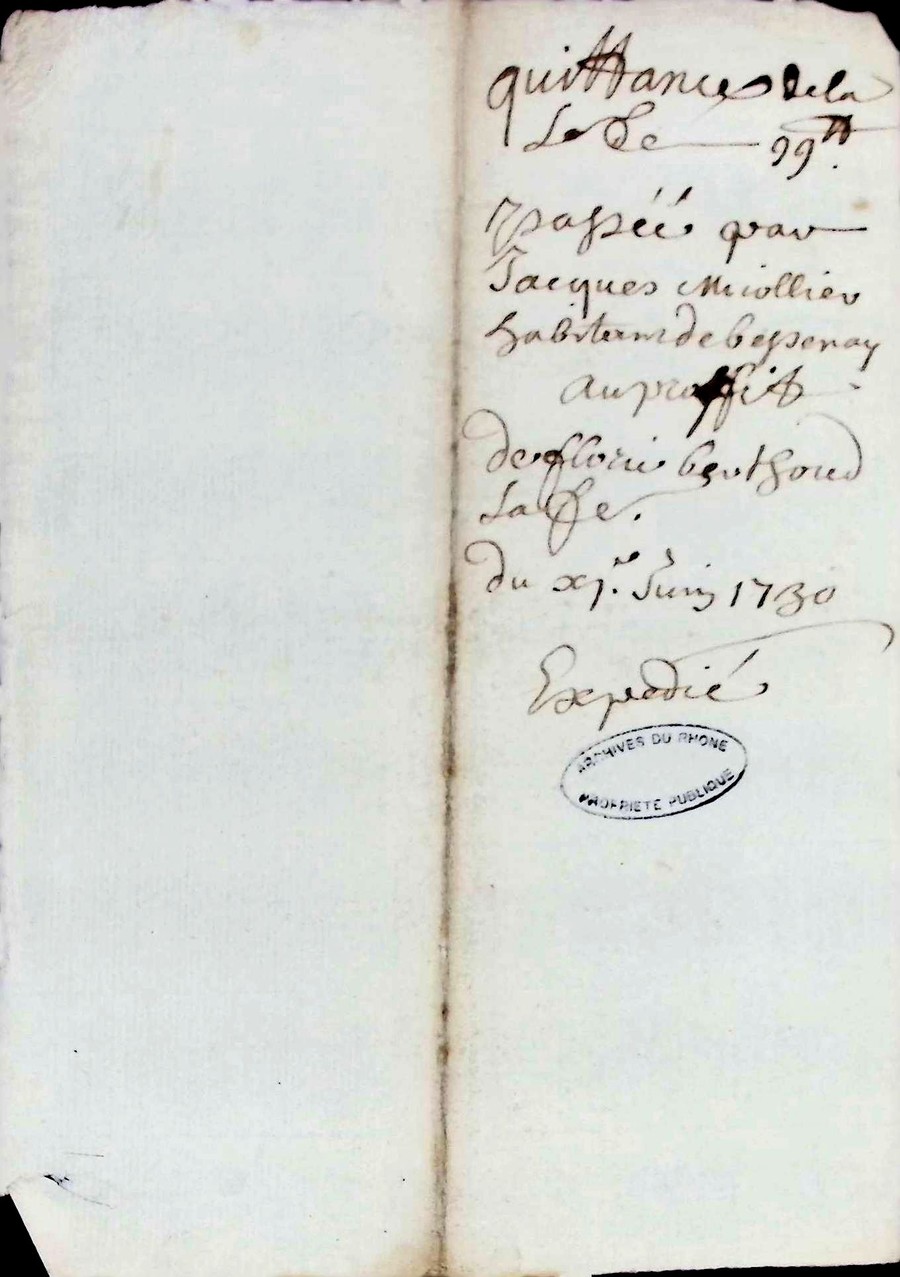 quittance de la
So᷉e de 99 ₶.
passéé par
Jacques Miollier
habitant de bessenay
au proffit
de fleurie berthoud
du xj.e Juin 1730
Expedié
ARCHIVES DU RHONE
PROPRIETE PUBLIQUE